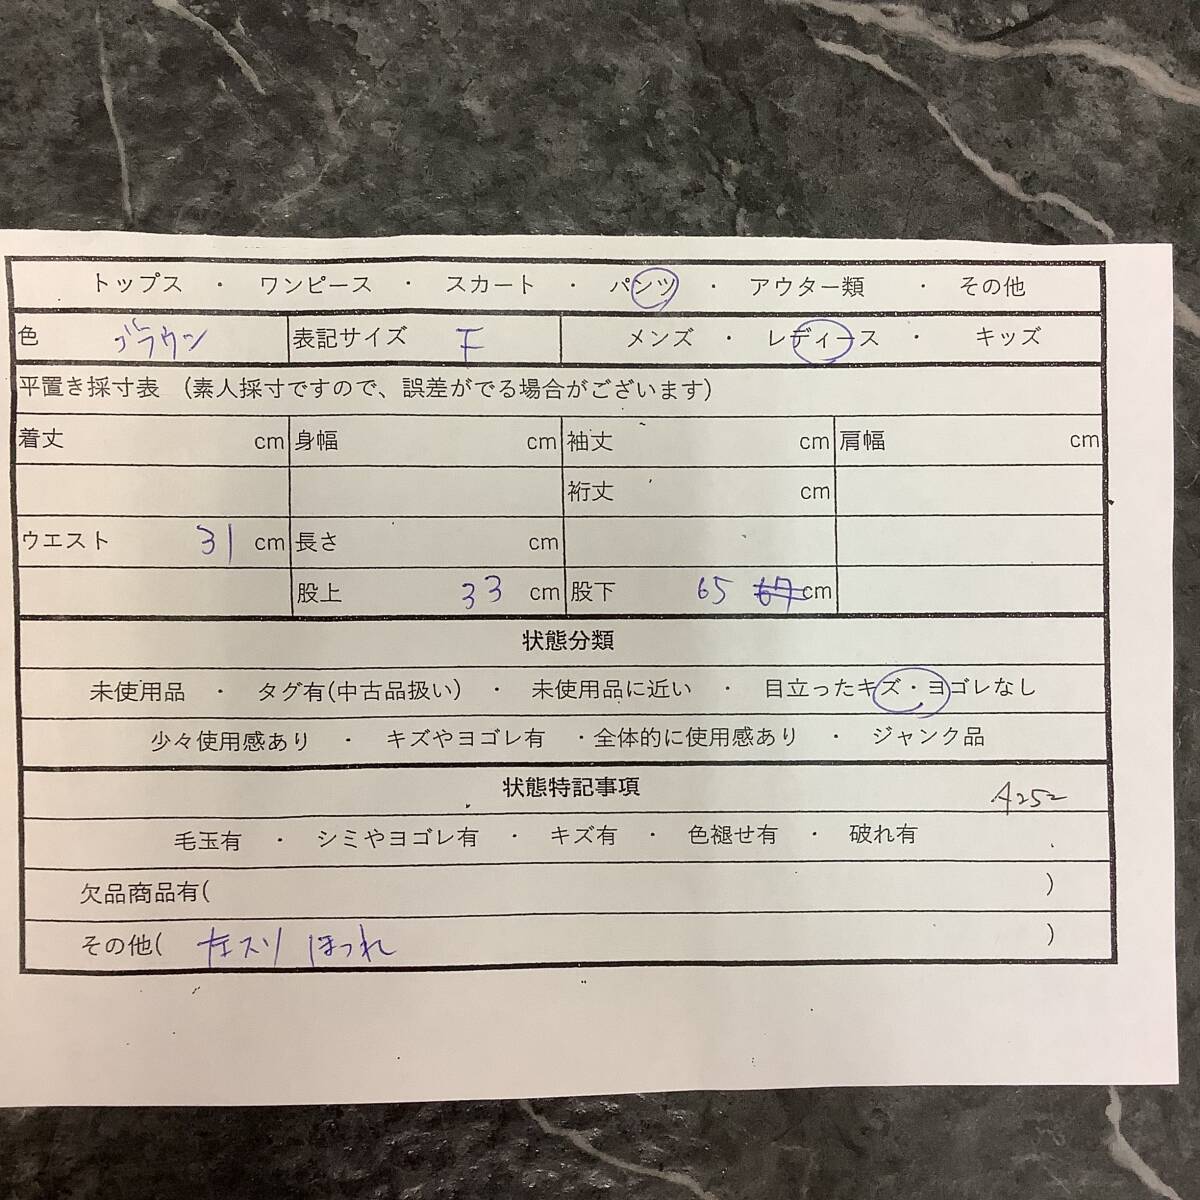 トップス ・ ワンピース ・ スカート ・ パンツ ・ アウター類 ・ その他
色 ブラウン 表記サイズ F メンズ ・ レディース ・ キッズ
平置き採寸表 (素人採寸ですので、誤差がでる場合がございます)
着丈 cm 身幅 cm 袖丈 cm 肩幅 cm
裄丈 cm
ウエスト 31 cm 長さ cm
股上 33 cm 股下 65 67 cm
状態分類
未使用品 ・ タグ有(中古品扱い) ・ 未使用品に近い ・ 目立ったキズ・ヨゴレなし
少々使用感あり ・ キズやヨゴレ有 ・全体的に使用感あり ・ ジャンク品
状態特記事項 A252
毛玉有 ・ シミやヨゴレ有 ・ キズ有 ・ 色褪せ有 ・ 破れ有
欠品商品有( )
その他( ほつれ )